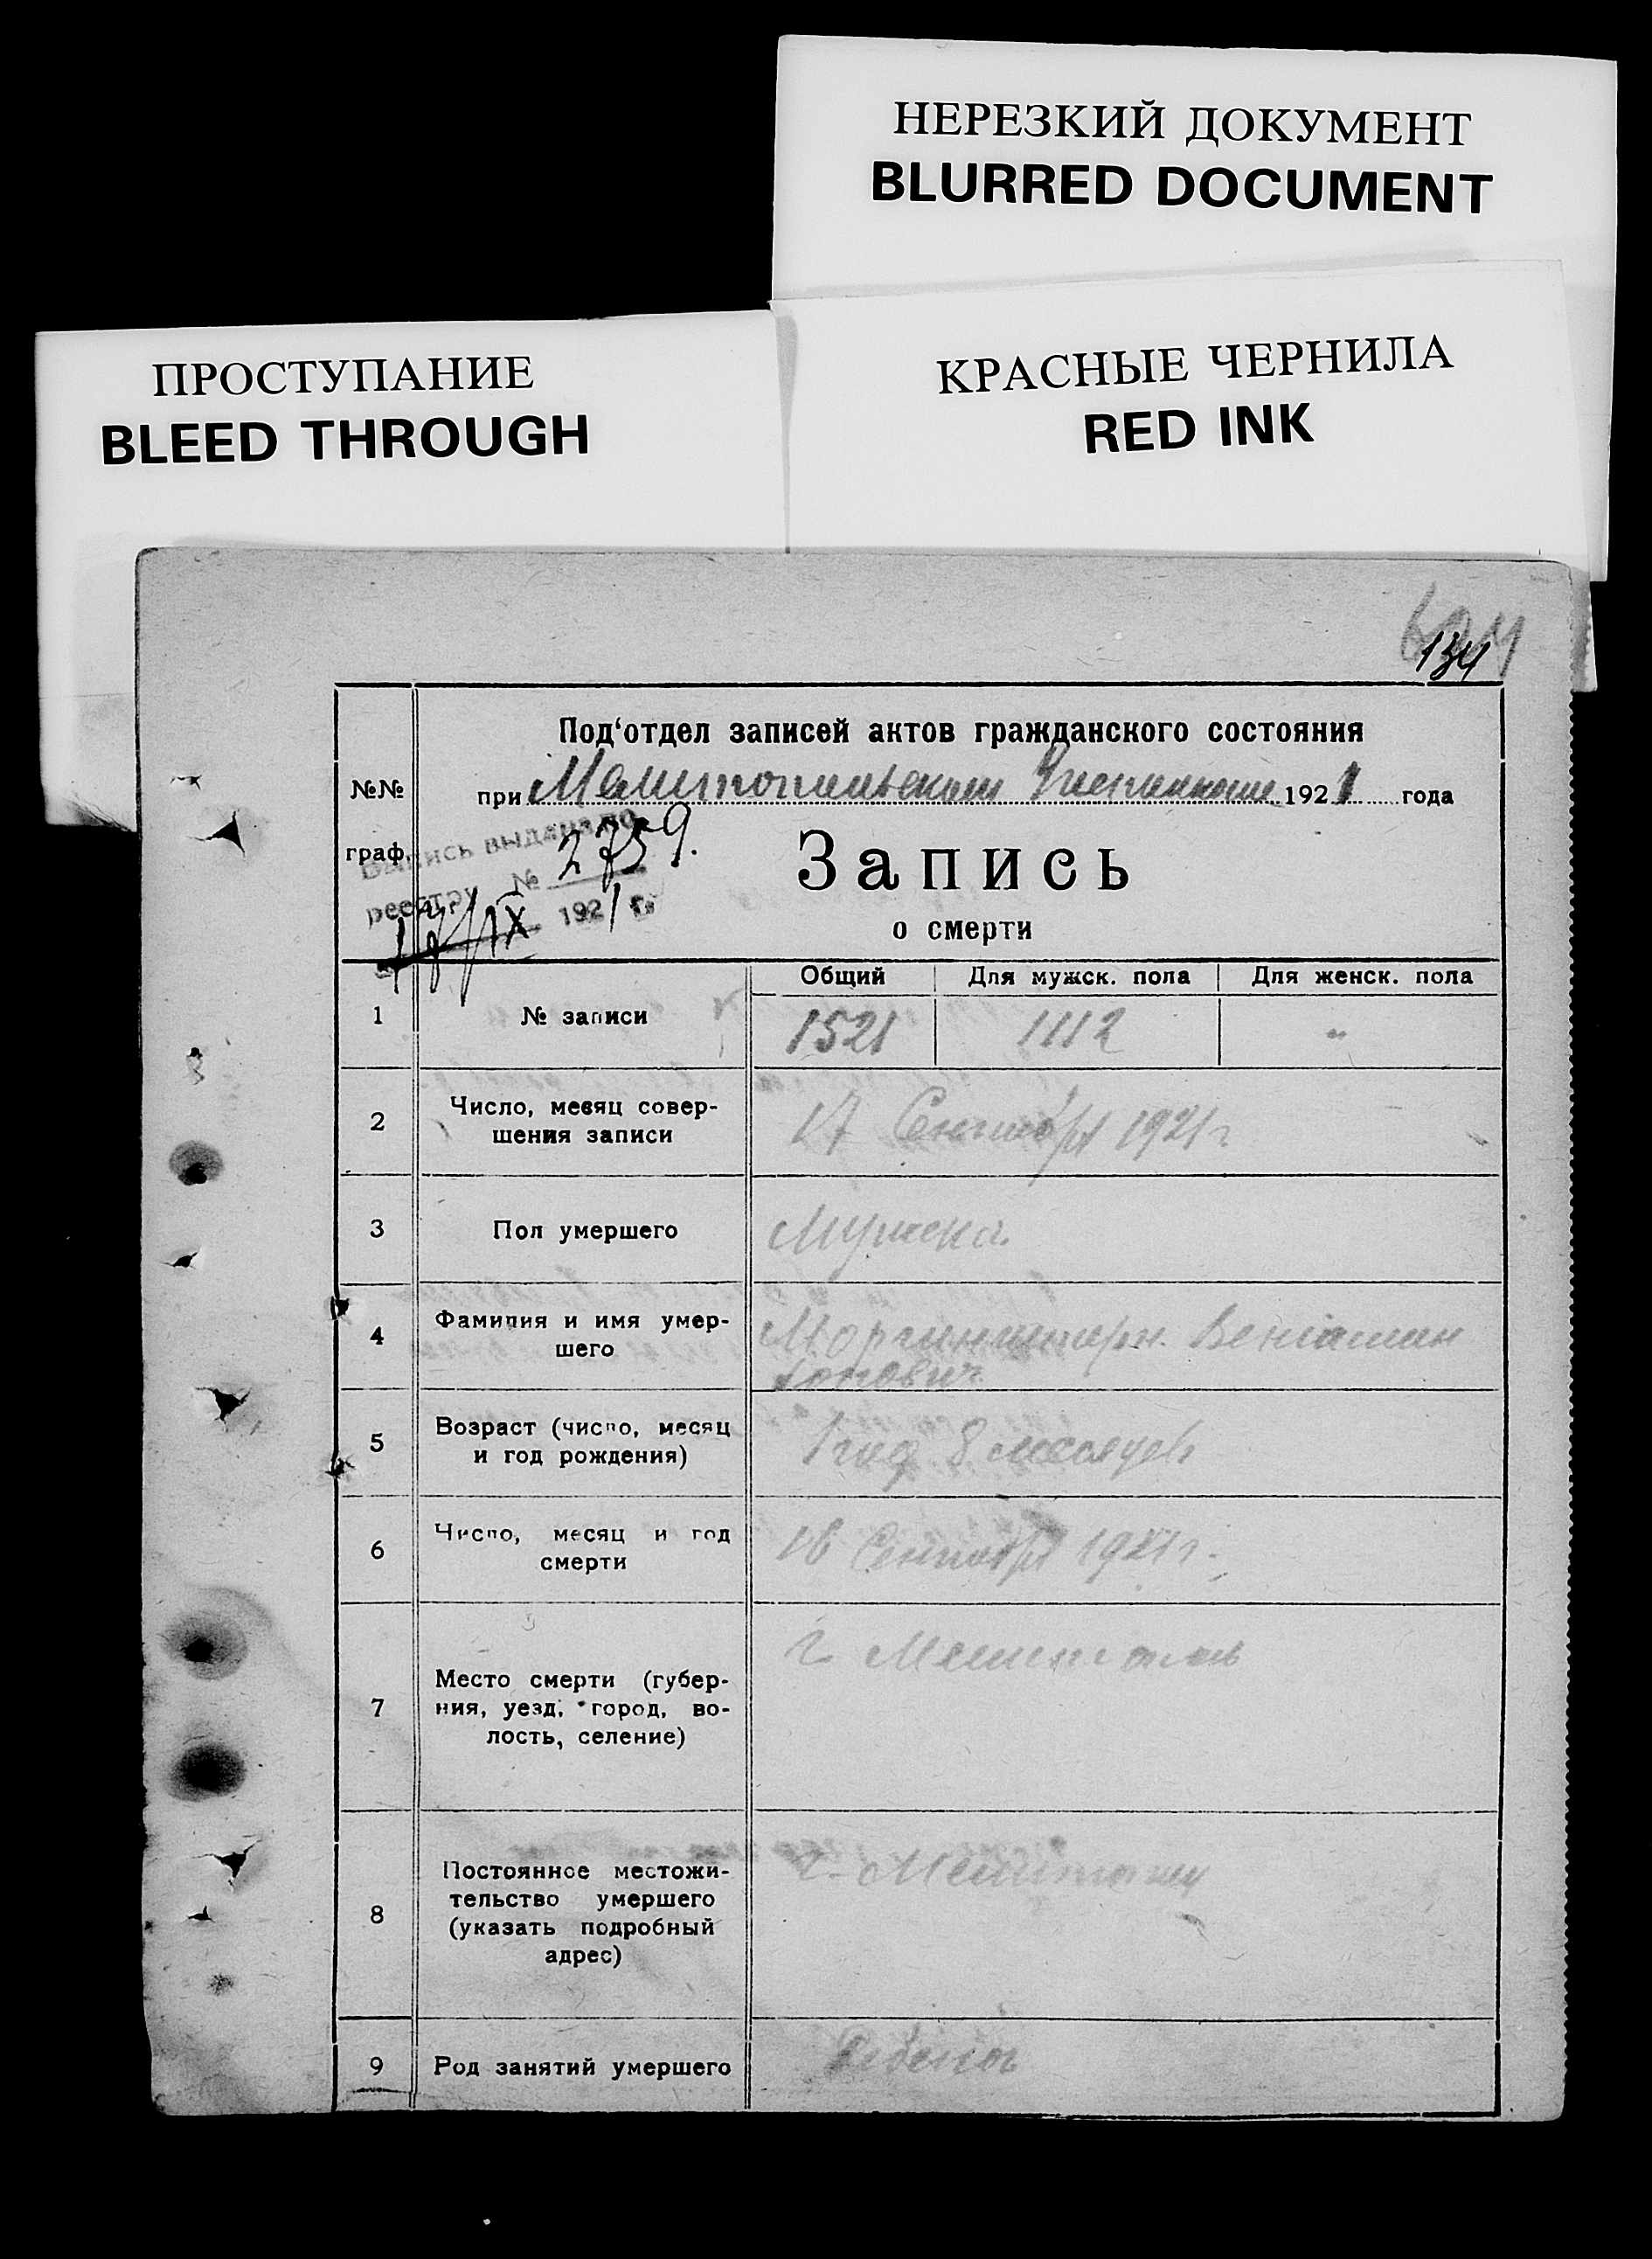 НЕРЕЗКИЙ ДОКУМЕНТ
BLURRED DOCUMENT
ПРОСТУПАНИЕ
BLEED THROUGH
КРАСНЫЕ ЧЕРНИЛА
RED INK
134
Под‘отдел записей актов гражданского состояния
№№
граф.
при Мелитопольском 1921 года
выдана по
реестру № 2759.
IX 1921 г.
Запись
о смерти
Общий Для мужск. пола Для женск. пола
1 № записи 1521 1112 "
2 Число, месяц совер-
шения записи
17 Сентября 1921 г
3 Пол умершего Мужска.
4 Фамилия и имя умер-
шего
Моргинштерн. Веніамин
5 Возраст (число, месяц
и год рождения)
1 год 8 месяцев
6 Число, месяц и год
смерти
16 Сентября 1921 г.
7 Место смерти (губер-
ния, уезд, город, во-
лость, селение)
г. Мелитополь
8 Постоянное местожи-
тельство умершего
(указать подробный
адрес)
г. Мелитополь
9 Род занятий умершего